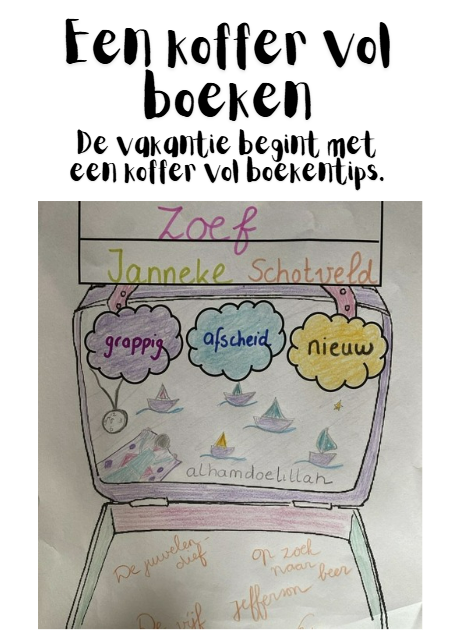 Een koffer vol
boeken
De vakantie begint met
een koffer vol boekentips.
Zoef
Janneke Schotveld
grappig
afscheid
nieuw
alhamdoelillah
De juwelen-
dief
op zoek
naar
jefferson
beer
De vijf